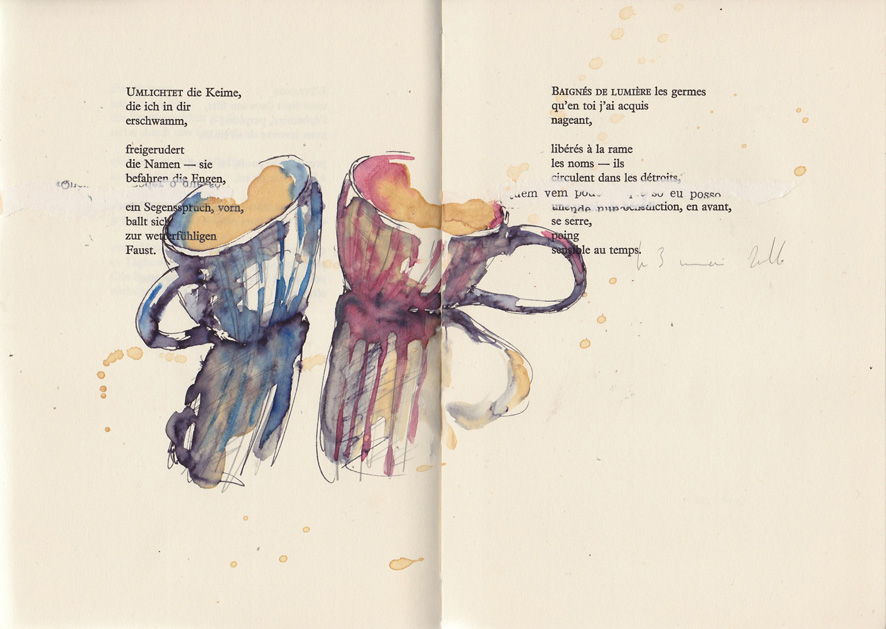 UMLICHTET die Keime,
die ich in dir
erschwamm,
freigerudert
die Namen — sie
befahren die Engen,
ein Segensspruch, vorn,
ballt sich
zur wetterfühligen
Faust.
BAIGNÉS DE LUMIÈRE les germes
qu'en toi j'ai acquis
nageant,
libérés à la rame
les noms — ils
circulent dans les détroits,
vem eu posso
bénédiction, en avant,
se serre,
poing
sensible au temps.
3